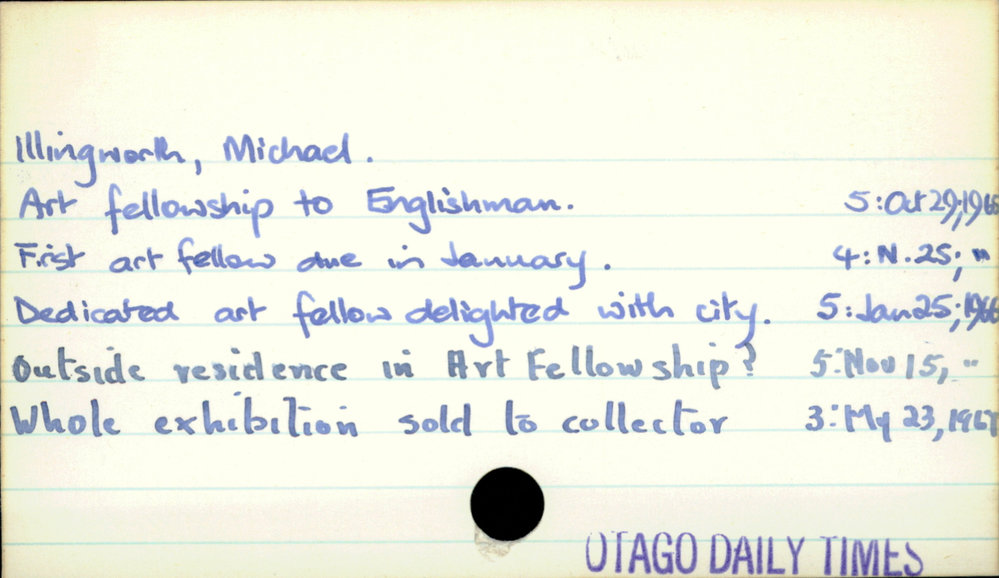 Illingworth, Michael.
Art fellowship to Englishman. 5:Oct 29;1965
First art fellow due in January. 4:N.25; "
Dedicated art fellow delighted with city. 5:Jan25;1966
Outside residence in Art Fellowship? 5:Nov 15, "
Whole exhibition sold to collector 3:My 23,1967
OTAGO DAILY TIMES